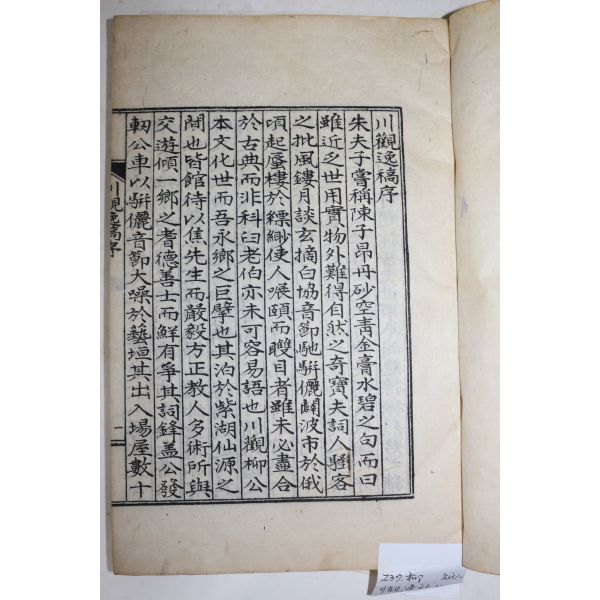 川觀逸稿序
朱夫子嘗稱陳子昂丹砂空靑金膏水碧之句而曰
雖近乏世用實物外難得自然之奇寶夫詞人騷客
之批風鏤月談玄摘白協音節馳騈儷闢波市於俄
頃起蜃樓於縹緲使人㗸頤而瞠目者雖未必盡合
於古典而非科臼老伯亦未可容易語也川觀柳公
本文化世而吾永鄕之巨擘也其泊於紫湖仙源之
間也皆館待以焦先生而嚴毅方正敎人多術所與
交遊傾一鄕之耆德善士而鮮有爭其詞鋒盖公發
軔公車以騈儷音節大噪於藝垣其出入場屋數十
川觀逸稿序
一
237. 柳